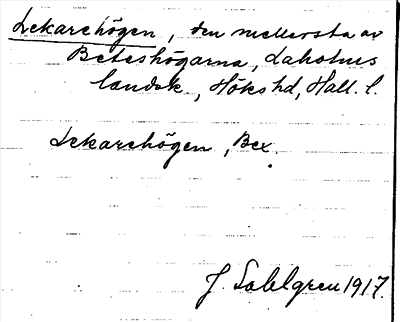 Lekarehögen, den mellersta av
Beteshögarna, Laholms
landsk., Höks hd, Hall. l.
Lekarehögen, Bex.
J. Sahlgren 1917.